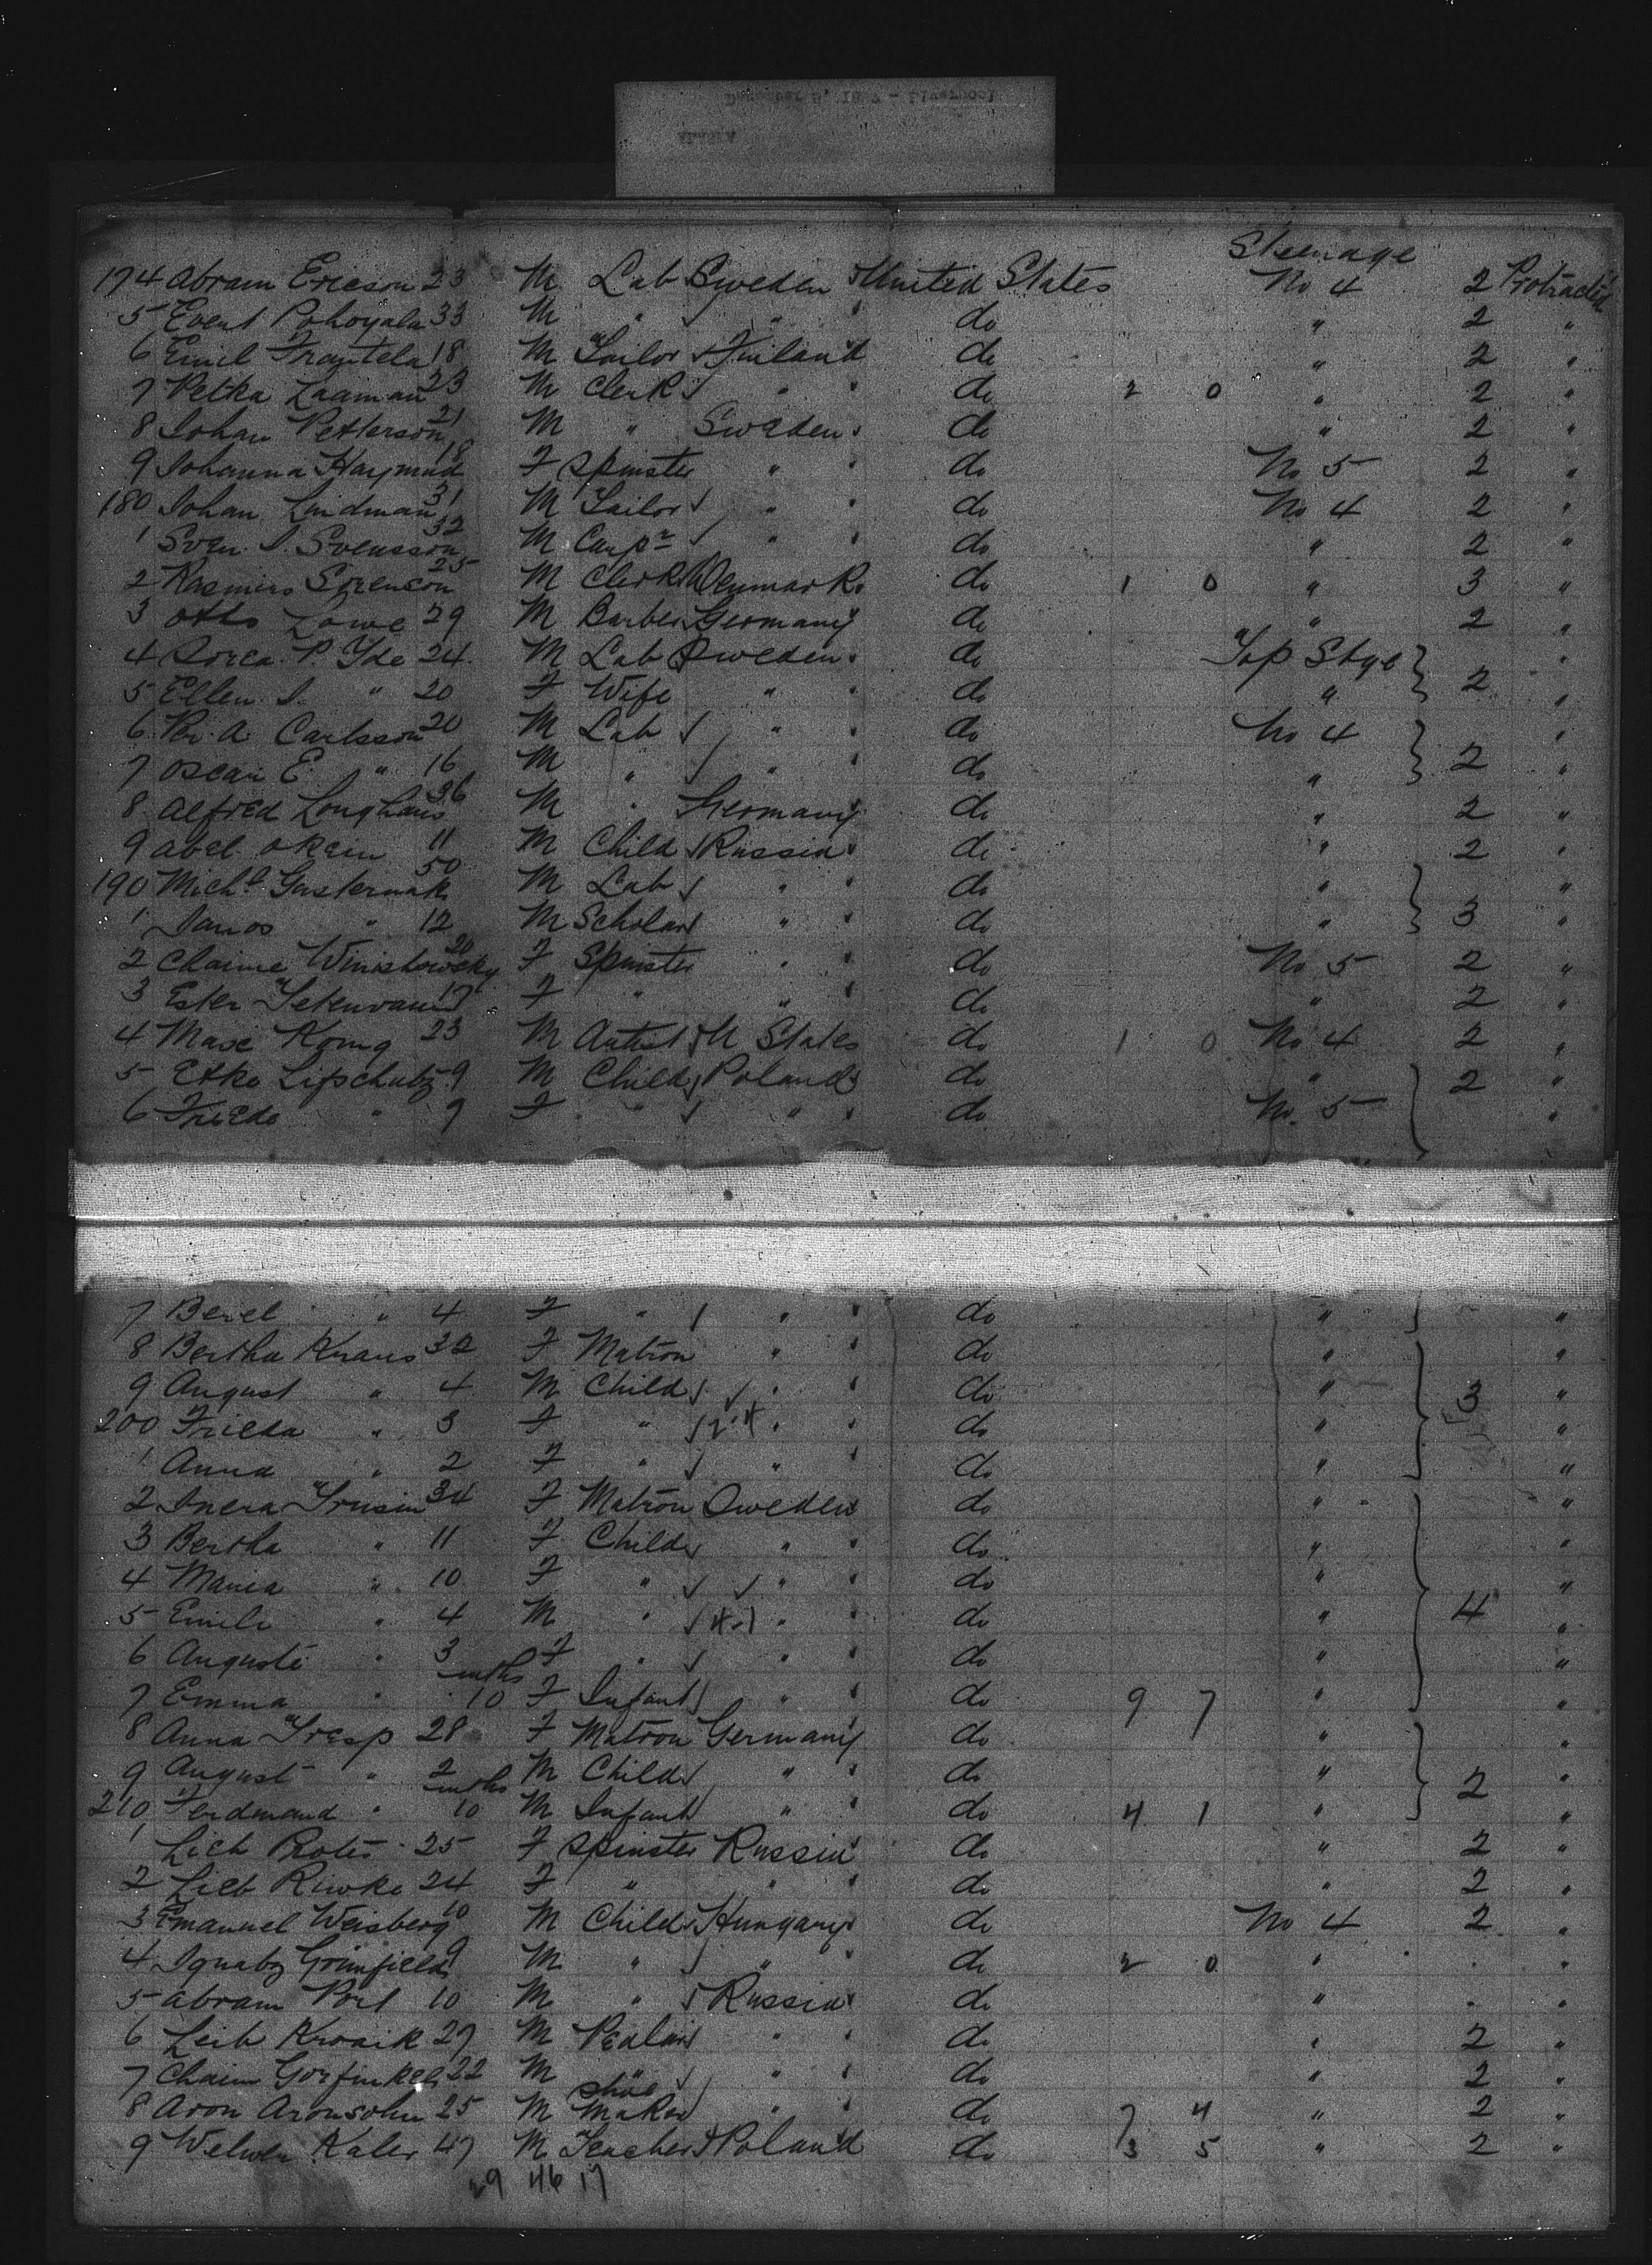 Steerage
174 Abram Ericson 23 M Lab Sweden United States No 4 2 Protracted
5 Evert Pohoyala 33 M " " do " 2 "
6 Emil Frantela 18 M Tailor Finland do " 2 "
7 Petka Laaman 23 M Clerk " do 2 0 " 2 "
8 Johan Petterson 21 M " Sweden do " 2 "
9 Johanna Haymud 18 F Spinster " do No 5 2 "
180 Johan Lindman 31 M Tailor " do No 4 2 "
1 Sven J. Svensson 32 M Carpr " do " 2 "
2 Rasmins Sorenson 25 M Clerk Denmark do 1 0 " 3 "
3 Otto Lowe 29 M Barber Germany do " 2 "
4 P. Yde 24 M Lab Sweden do Top Styc 2 "
5 Ellen J. " 20 F Wife " do " "
6 Per A. Carlsson 20 M Lab " do No 4 2 "
7 Oscar E. " 16 M " " do " "
8 Alfred Longhans 36 M " Germany do " 2 "
9 Abel Okein 11 M Child Russia do " 2 "
190 Michl Gusternak 50 M Lab " do " 3 "
1 Janos " 12 M Scholar " do " "
2 Chaime Winishowsky 20 F Spinster " do No 5 2 "
3 Ester 17 F " " do " 2 "
4 Max Konig 23 M Artist U States do 1 0 No 4 2 "
5 Etko Lipschutz 9 M Child Poland do " 2 "
6 Friedo " 7 F " " do No. 5 "
7 Berel " 4 F " " do " "
8 Bertha Kraus 32 F Matron " do " 3 "
9 August " 4 M Child " do " "
200 Frieda " 3 F " 2-4 " do " "
1 Anna " 2 F " " do " "
2 Inera Trusin 34 F Matron Sweden do " 4 "
3 Bertha " 11 F Child " do " "
4 Maria " 10 F " " do " "
5 Emile " 4 M " 4-1 " do " "
6 Auguste " 3 F " " do " "
7 Emma " mths 10 F Infant " do 9 7 " "
8 Anna Tresp 28 F Matron Germany do " 2 "
9 August " 2 M Child " do " "
210 Ferdinand " mths 10 M Infant " do 4 1 " "
1 Lieb Rotes 25 F Spinster Russia do " 2 "
2 Lieb Riwke 24 F " " do " 2 "
3 Emanuel Weisberg 10 M Child Hungary do No 4 2 "
4 Ignatz Grunfield 9 M " " do 2 0 " " "
5 Abram Port 10 M " Russia do " " "
6 Leib Kroaik 27 M Pealar " do " 2 "
7 Chaim Gorfinkel 22 M " " do " 2 "
8 Aron Aronsohn 25 M Shoe Maker " do 7 4 " 2 "
9 Welwer Kaler 47 M Teacher Poland do 3 5 " 2 "
29 46 17